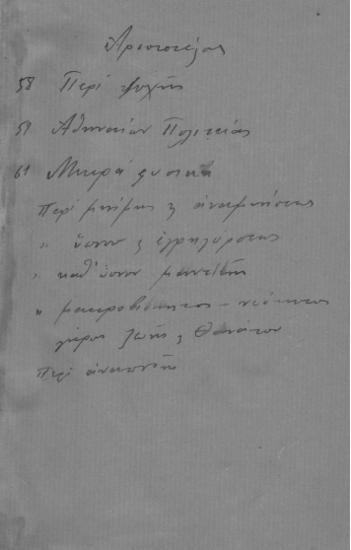 Αριστοτέλης
58 Περί ψυχής
59 Αθηναίων Πολιτείας
61 Μικρά φυσικά
Περί μνήμης & αναμνήσεως
" ύπνου & εγρηγόρσεως
" καθ' ύπνον μαντικής
" μακροβιότητος – νεότητος
γήρος ζωής & θανάτου
Περί αναπνοής